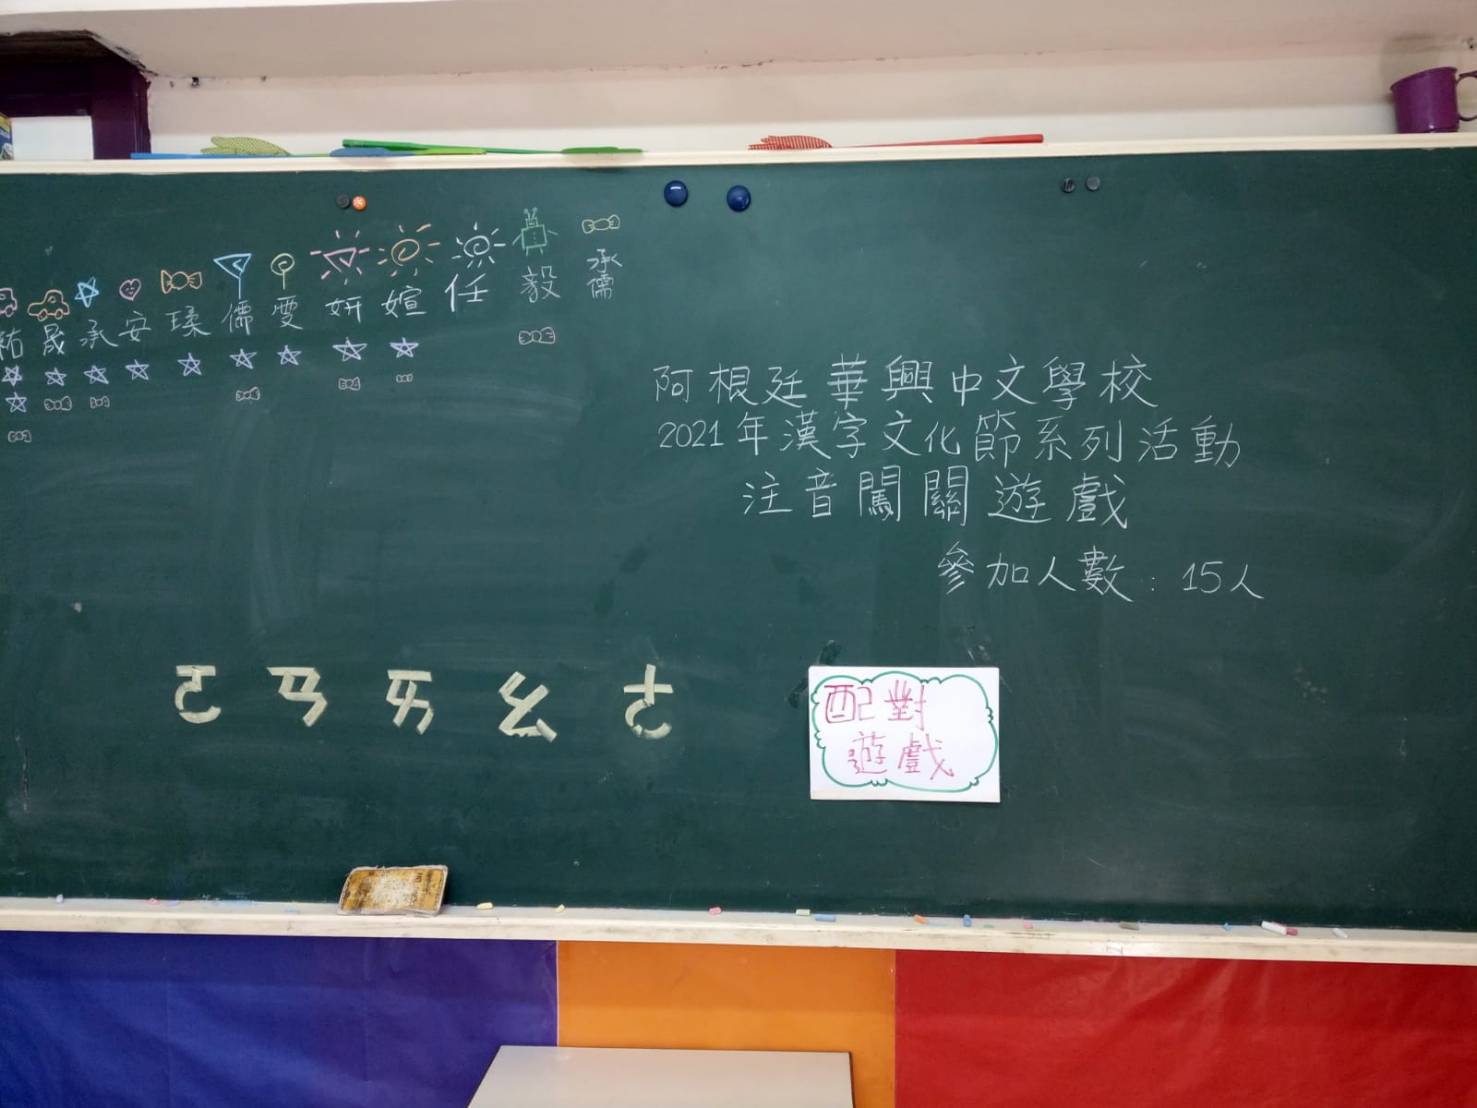 祐 晟 承 安 儒 雯 妍 媗 任 毅 承儒
阿根廷華興中文學校
2021年漢字文化節系列活動
注音闖關遊戲
參加人數：15人
ㄛ ㄢ ㄞ ㄠ ㄜ
配對
遊戲